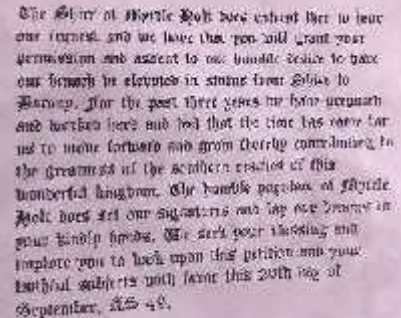 The Shire of Myrtle Holt does entreat thee to hear
our request and we hope that you will grant your
permission and assent to our humble desire to have
our branch be elevated in status from Shire to
Barony. For the past three years we have
and worked hard and feel that the time has come for
us to move forward and grow thereby contributing to
the greatness of the southern reaches of this
wonderful kingdom. The humble populace of Myrtle
Holt does set our signatures and lay our in
your kindly hands. We seek your blessing and
implore you to look upon this petition and your
faithful subjects with favor this 20th day of
September, AS 49.